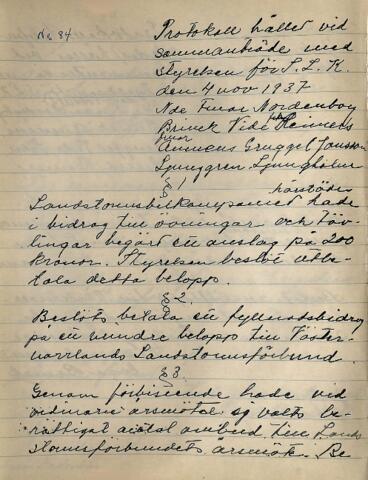 No 84
Protokoll hållet vid
sammanträde med
Styrelsen för S. L. K.
den 4 nov 1937
Nde Fruar Nordenborg
Brinck Vide Reimers
fruar
Ammens Gruggel Jonsson
Ljunggren Ljungholm
§ 1 härstädes
Landstormsbilkårpsamed hade
i bidrag till övningar och täv-
lingar begärd ett anslag på 200
kronor. Styrelsen beslöt utbe-
tala detta belopp.
§ 2.
Beslöts betala ett fyllnadsbidrag
på ett mindre belopp till Väster-
norrlands Landstormsförbund.
§ 3
Genom förbiseende hade vid
ordinarie årsmötet ej valts be-
rättigat antal ombud till Lands
stormsförbundets årsmöte. Be